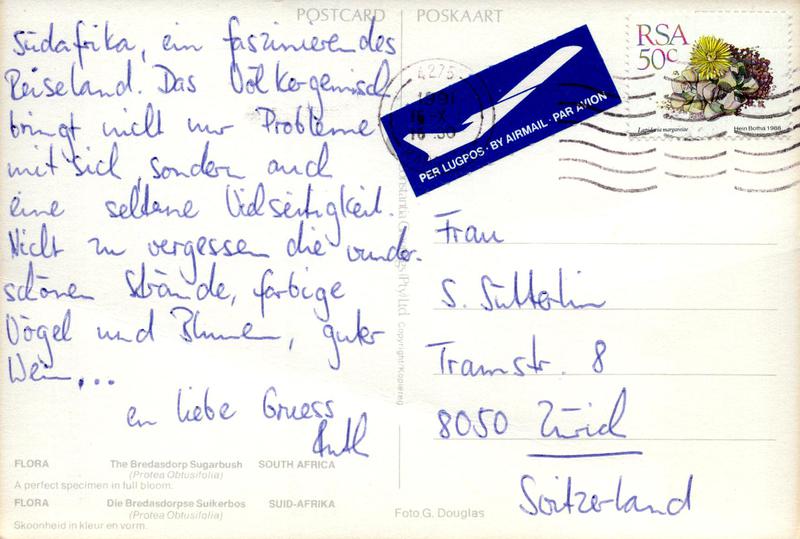 POSTCARD POSKAART
Südafrika, ein faszinierendes
Reiseland. Das Völkergemisch
bringt nicht nur Probleme
mit sich, sondern auch
eine seltene Vielseitigkeit.
Nicht zu vergessen die wunder-
schönen Strände, farbige
Vögel und Blumen, guter
Wein,...
en liebe Gruess
Ruth
RSA
50c
Lapidaria margaretae
Hein Botha 1988
4275
1991
18 .30
PER LUGPOS · BY AIRMAIL · PAR AVION
Frau
S. Sütterlin
Tramstr. 8
8050 Zürich
Switzerland
(Pty) Ltd. Copyright/Kopiereg
FLORA The Bredasdorp Sugarbush SOUTH AFRICA
(Protea Obtusifolia)
A perfect specimen in full bloom.
FLORA Die Bredasdorpse Suikerbos SUID-AFRIKA
(Protea Obtusifolia)
Skoonheid in kleur en vorm.
Foto G. Douglas